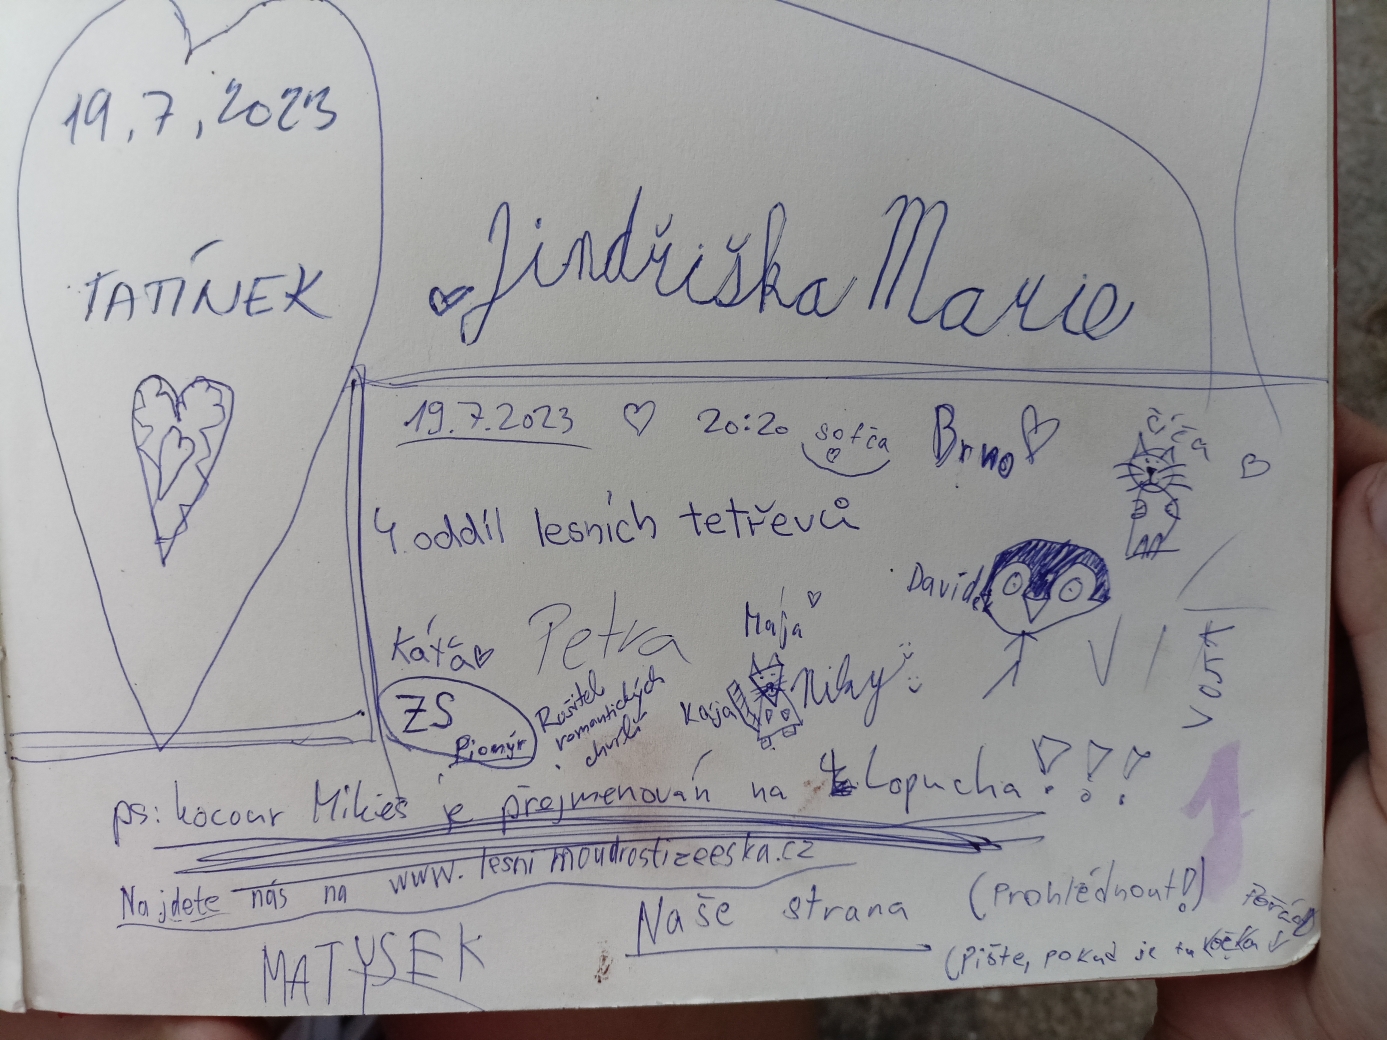 19.7.2023
TATÍNEK
Jindřiška Marie
19.7.2023 20:20 sofča Brno
číča
4. oddíl lesních tetřevů
Davídek
Káťa Petra Mája
Kája Niky
ZS Pionýr
Rušitel
romantických
chvil
ps: kocour Mikeš je přejmenován na Lopucha!!!
1
Najdete nás na www.lesnimoudrostizeeska.cz
Naše strana (Prohlédnout!)
(Pište, pokud je tu kočka
MATÝSEK